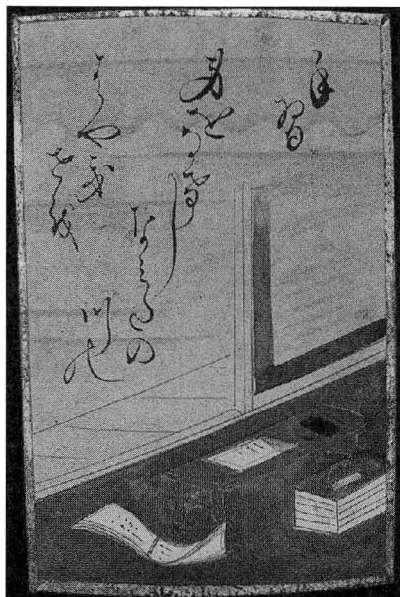 手習
身をなけし
なみたの
川の
はやき
せを